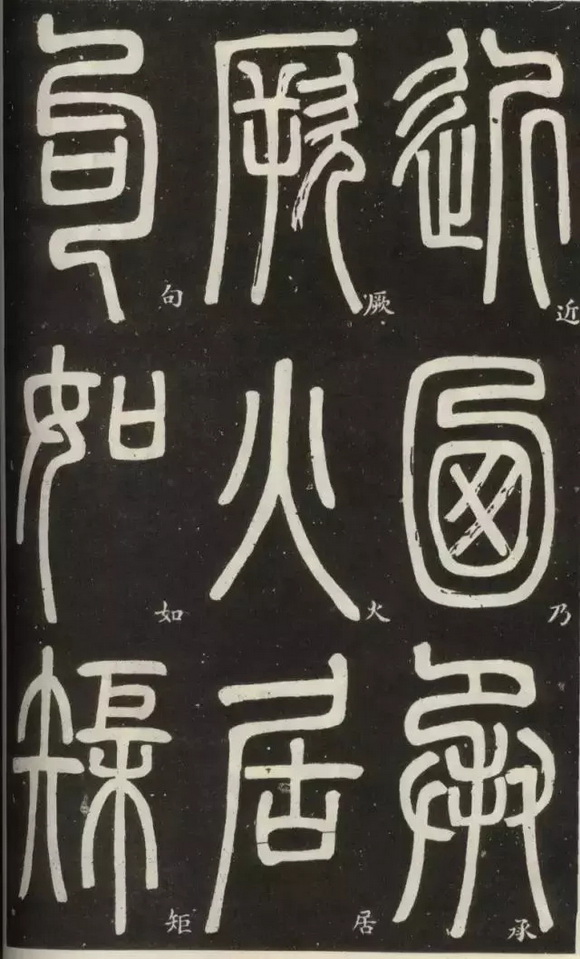 近乃承
厥火居
句如矩